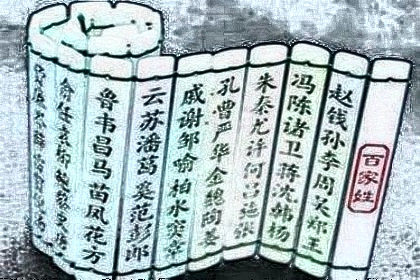 百家姓
赵钱孙李周吴郑王
冯陈诸卫蒋沈韩杨
朱秦尤许何吕施张
孔曹严华金魏陶姜
戚谢邹喻柏水窦章
云苏潘葛奚范彭郎
鲁韦昌马苗凤花方
俞任袁柳